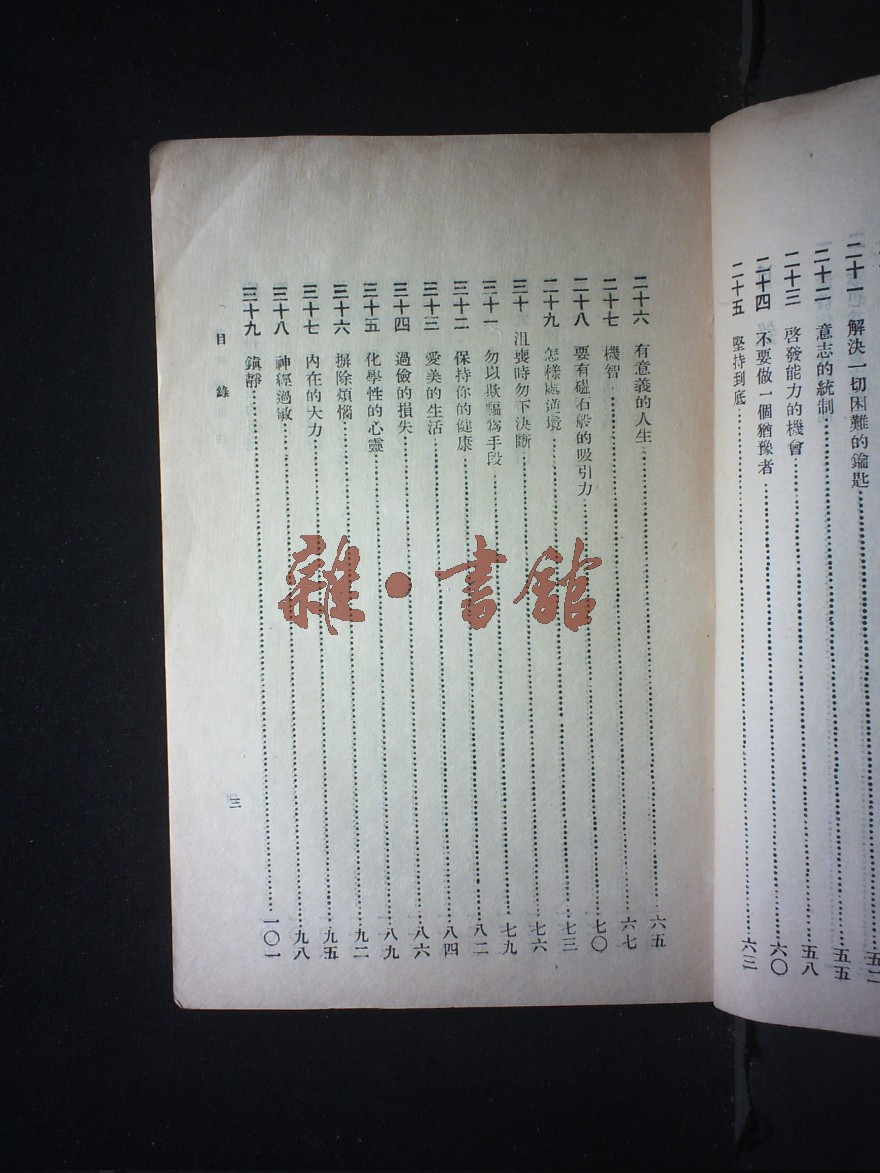 二十一 解決一切困難的鑰匙……五二
二十二 意志的統制……五五
二十三 啓發能力的機會……五八
二十四 不要做一個猶豫者……六〇
二十五 堅持到底……六三
二十六 有意義的人生……六五
二十七 機智……六七
二十八 要有磁石般的吸引力……七〇
二十九 怎樣處逆境……七三
三十 沮喪時勿下決斷……七六
三十一 勿以欺騙爲手段……七九
三十二 保持你的健康……八二
三十三 愛美的生活……八四
三十四 過儉的損失……八六
三十五 化學性的心靈……八九
三十六 摒除煩惱……九二
三十七 內在的大力……九五
三十八 神經過敏……九八
三十九 鎮靜……一〇一
目錄
三
雜·書館